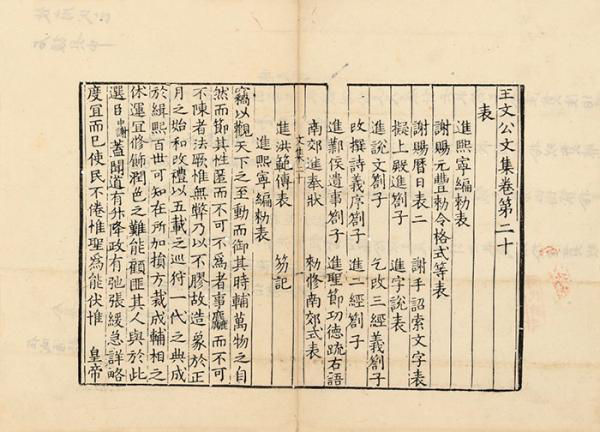 王文公文集卷第二十
表
進熙寧編勑表
謝賜元豐勑令格式等表
謝賜曆日表二 謝手詔索文字表
擬上殿進劄子 進字說表
進說文劄子 乞改三經義劄子
改撰詩義序劄子 進二經劄子
進鄴侯遺事劄子 進聖節功德疏右語
南郊進奉狀 勑修南郊式表
進洪範傳表 笏記
進熙寧編勑表
竊以觀天下之至動而御其時輔萬物之自
然而節其性匿而不可不為者事麤而不可
不陳者法歟惟無弊乃以不膠故造象於正
月之始和改禮以五載之巡狩一代之典成
於緝熙百世可知在所加損方裁成輔相之
休運宜修飾潤色之難能顧匪其人與於此
選中謝蓋聞道有升降政有弛張緩急詳略
度宜而已使民不倦惟聖為能伏惟 皇帝